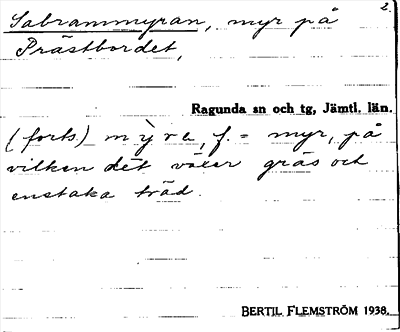 2.
Sabrammyran, myr på
Prästbordet,
Ragunda sn och tg, Jämtl. län.
(forts.) mỳra, f. = myr, på
vilken det växer gräs och
enstaka träd.
BERTIL FLEMSTRÖM 1938.